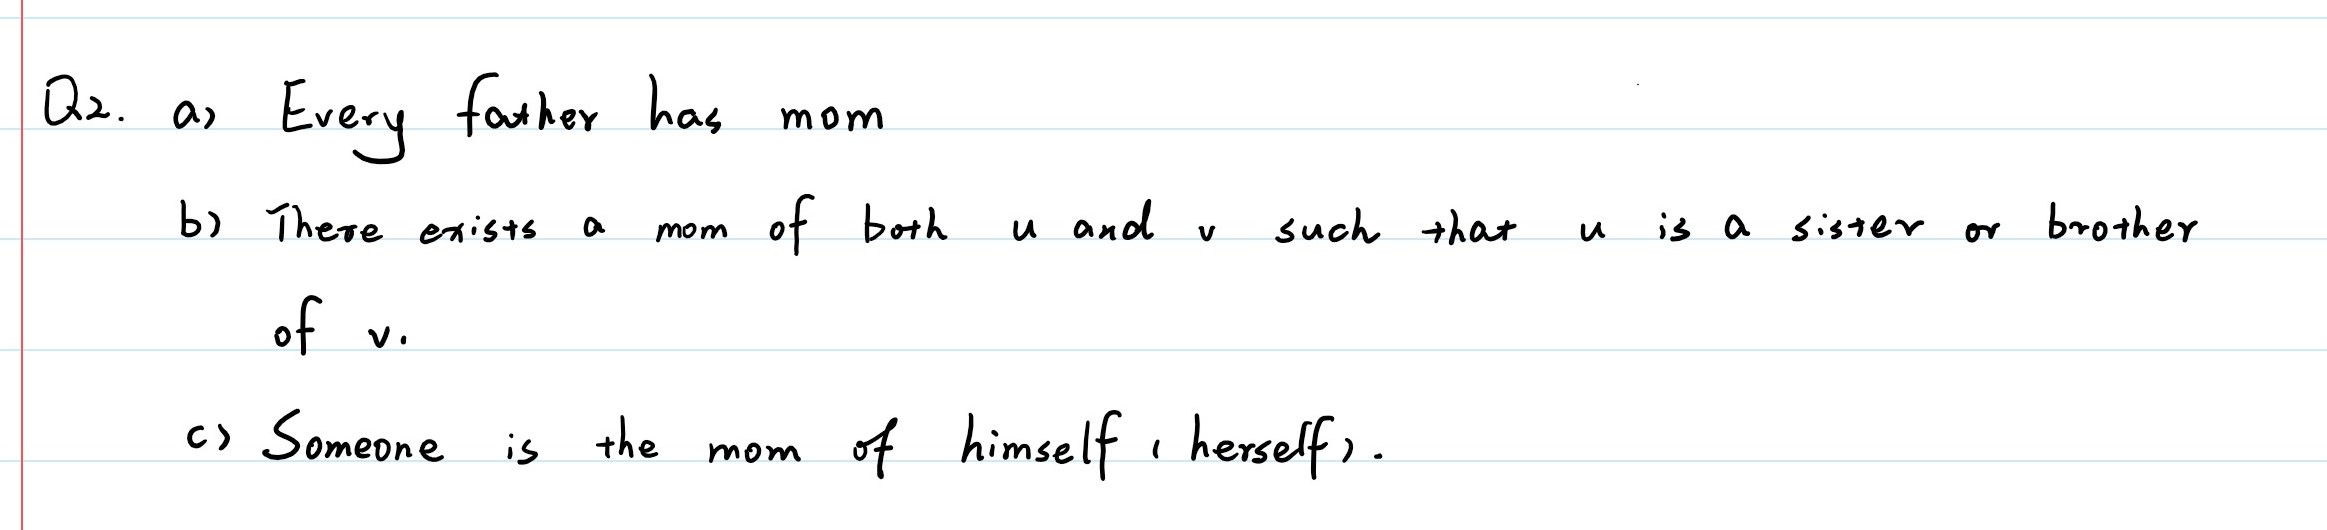 Q2. a) Every father has mom
b) There exists a mom of both u and v such that u is a sister or brother
of v.
c) Someone is the mom of himself (herself).